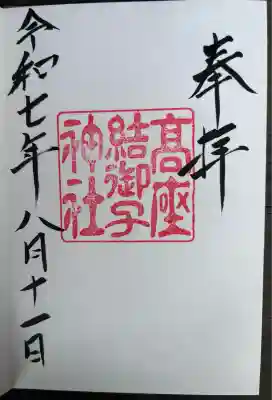 奉拝
高座
結御子
神社
令和七年八月十一日